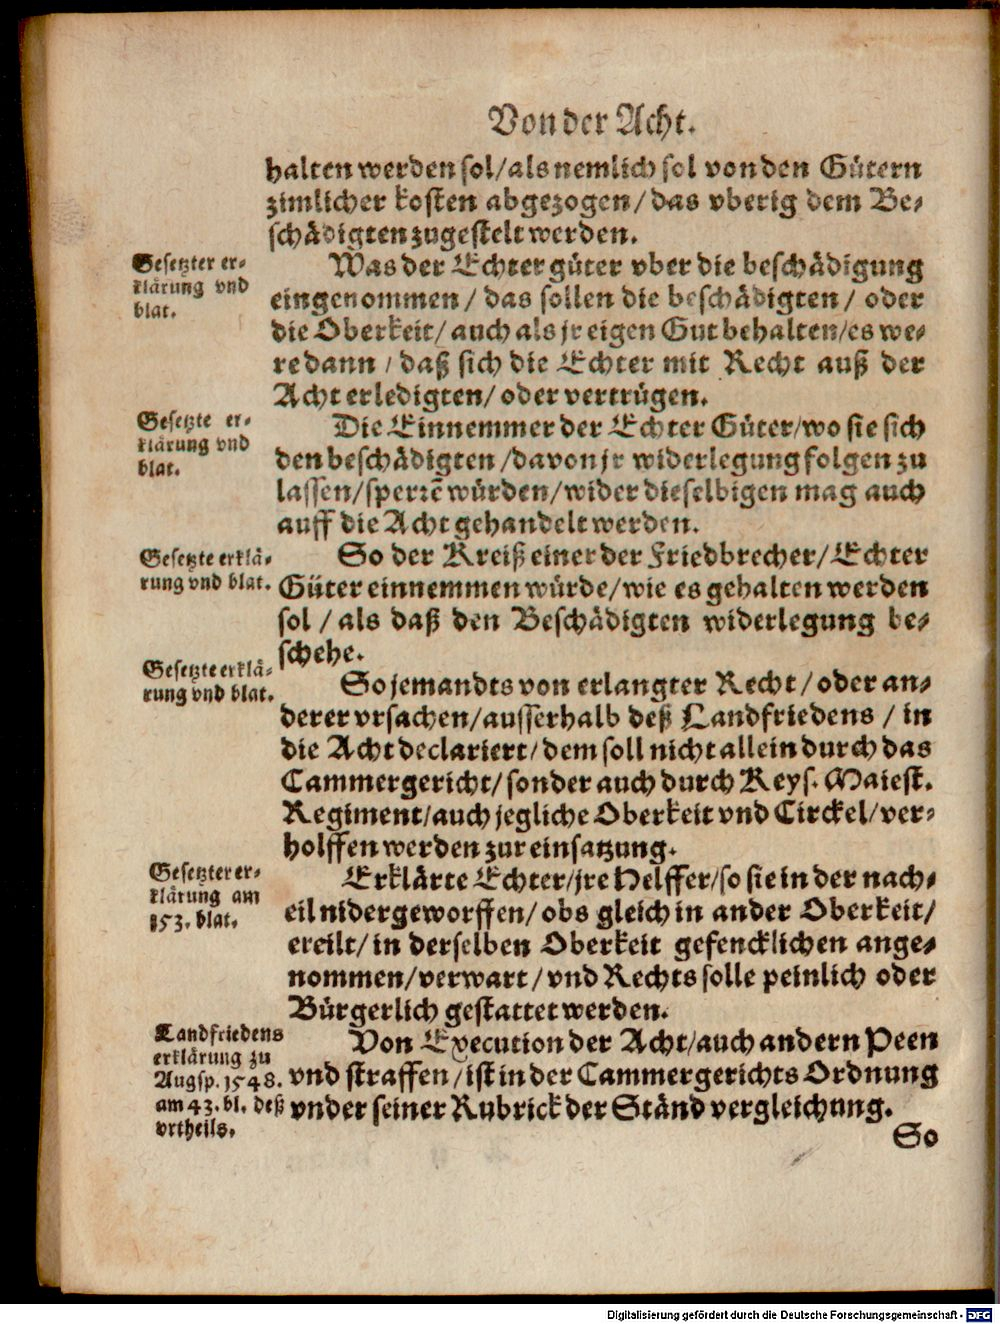 Von der Acht.
halten werden sol/als nemlich sol von den Gütern
zimlicher kosten abgezogen/das vberig dem Be-
schädigten zugestelt werden.
Gesetzter er-
klärung vnd
blat.
Was der Echter güter vber die beschädigung
eingenommen/das sollen die beschädigten/oder
die Oberkeit/auch als jr eigen Gut behalten/es we-
re dann/daß sich die Echter mit Recht auß der
Acht erledigten/oder vertrügen.
Gesetzte er-
klärung vnd
blat.
Die Einnemmer der Echter Güter/wo sie sich
den beschädigten/davon jr widerlegung folgen zu
lassen/sperrē würden/wider dieselbigen mag auch
auff die Acht gehandelt werden.
Gesetzte erklä-
rung vnd blat.
So der Kreiß einer der Friedbrecher/Echter
Güter einnemmen würde/wie es gehalten werden
sol/als daß den Beschädigten widerlegung be-
schehe.
Gesetzte erklä-
rung vnd blat.
So jemandts von erlangter Recht/oder an-
derer vrsachen/ausserhalb deß Landfriedens/in
die Acht declariert/dem soll nicht allein durch das
Cammergericht/sonder auch durch Keys. Maiest.
Regiment/auch jegliche Oberkeit vnd Circkel/ver-
holffen werden zur einsatzung.
Gesetzter er-
klärung am
153. blat.
Erklärte Echter/jre Helffer/so sie in der nach-
eil nidergeworffen/obs gleich in ander Oberkeit/
ereilt/in derselben Oberkeit gefencklichen ange-
nommen/verwart/vnd Rechts solle peinlich oder
Bürgerlich gestattet werden.
Landfriedens
erklärung zu
Augsp. 1548.
am 43. bl. deß
vrtheils.
Von Execution der Acht/auch andern Peen
vnd straffen/ist in der Cammergerichts Ordnung
vnder seiner Rubrick der Ständ vergleichung.
So
Digitalisierung gefördert durch die Deutsche Forschungsgemeinschaft - DFG